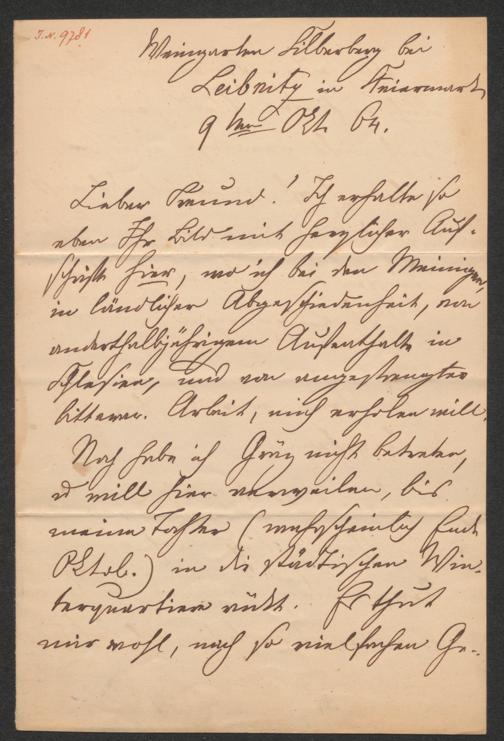 I.N. 9781
Weingarten Silberberg bei
Leibnitz in Steiermark
9ten Okt. 64.
Lieber Freund! Ich erhalte so
eben Ihr Bild mit herzlicher Auf-
schrift hier, wo ich bei den Meinigen,
in ländlicher Abgeschiedenheit, von
anderthalbjährigem Aufenthalte in
Schlesien, und von angestrengter
bitterer Arbeit, mich erholen will.
Noch habe ich Gräz nicht betreten,
u will hier verweilen, bis
meine Tochter (wahrscheinlich Ende
Oktob.) in die städtischen Win-
terquartiere rückt. Es thut
mir wohl, nach so vielfachen Ge-